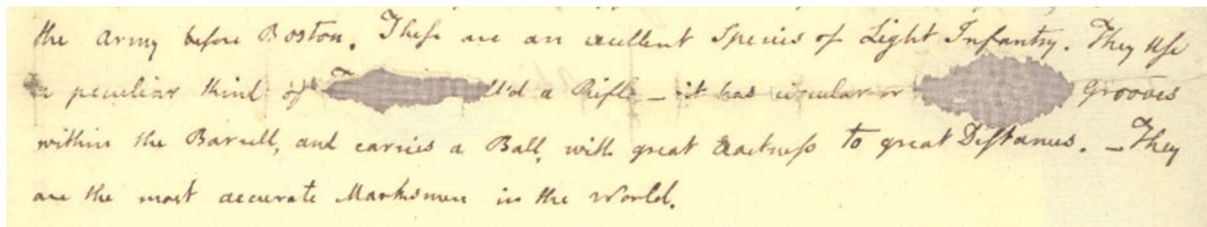 the Army before Boston. These are an excellent Species of Light Infantry. They use
a peculiar Kind of ll'd a Rifle — it has circular or Grooves
within the Barrell, and carries a Ball, with great Exactness to great Distances. — They
are the most accurate Marksmen in the World.